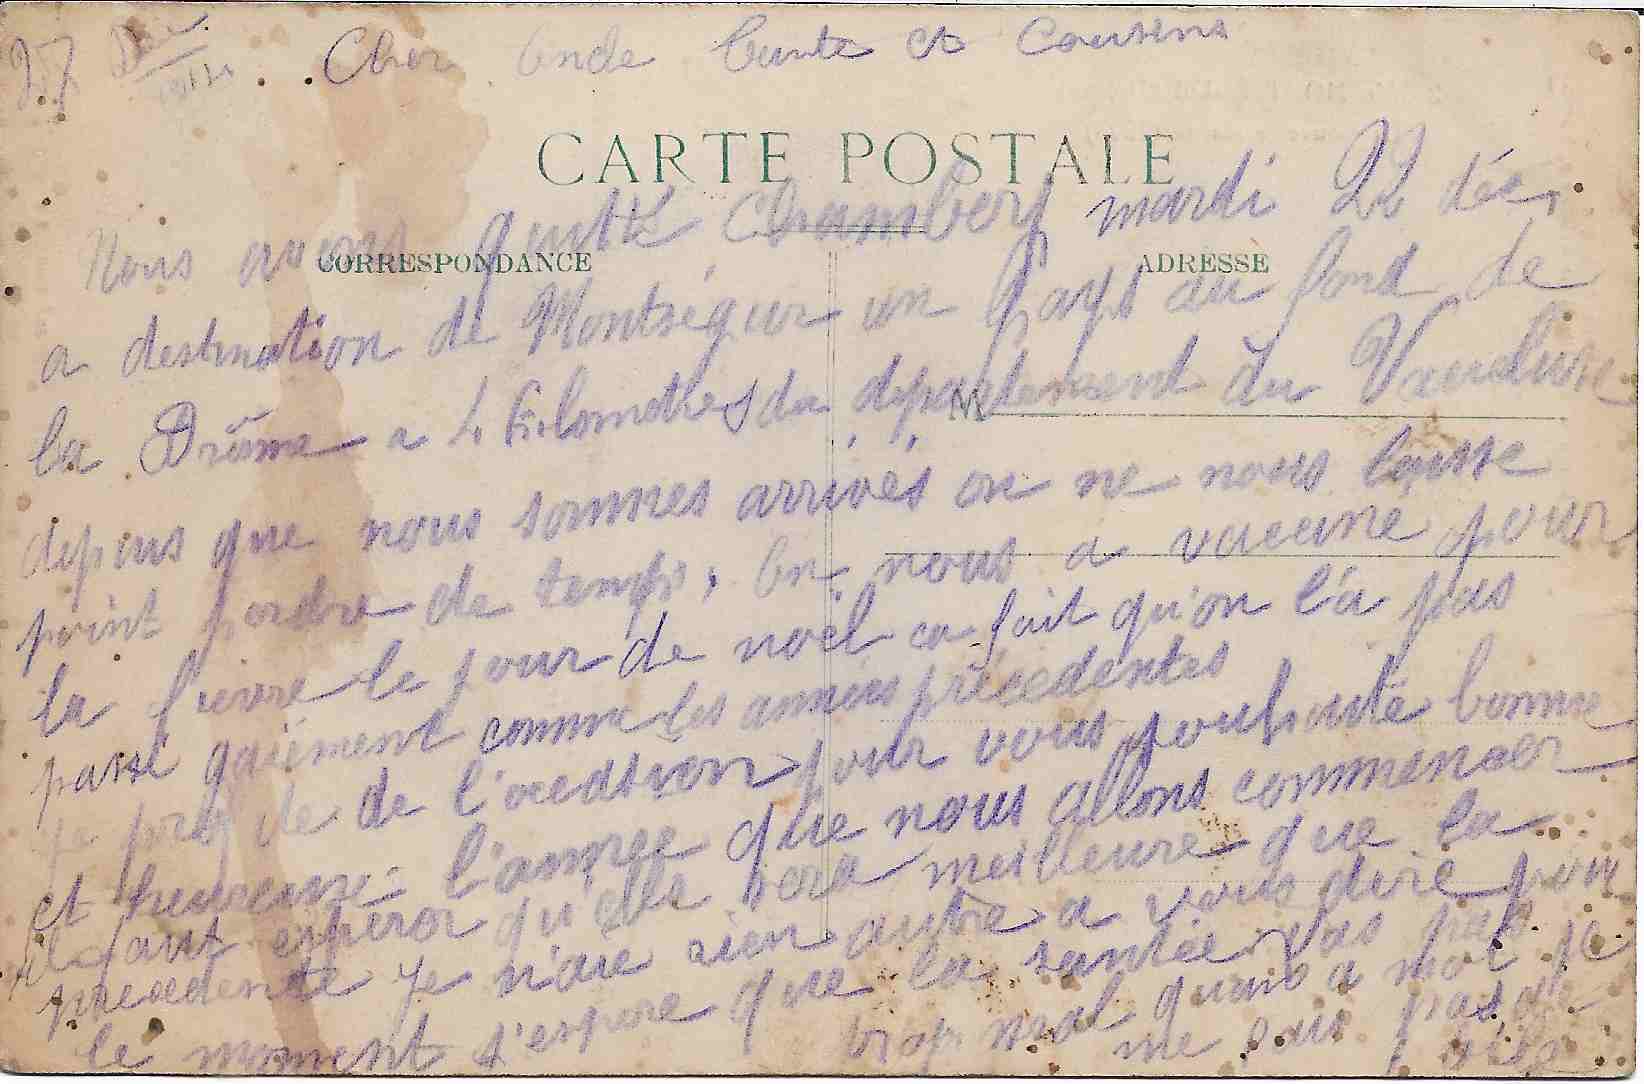 27 Déc. 1914
Cher Oncle Tante et Cousins
CARTE POSTALE
CORRESPONDANCE
ADRESSE
Nous avons quitté Chambery mardi 22 déc.
a destination de Montségur un pays au fond de
la Drôme a 4 kilometres du département du Vaucluse
depuis que nous sommes arrivés on ne nous laisse
point perdre de temps, On nous a vacciné pour
la fievre le jour de noël ca fait qu'on l'a pas
passé gaiement comme les années précedentes
je profite de l'occasion pour vous souhaité bonne
et heureuse l'année que nous allons commencer
il faut esperer qu'elle sera meilleure que la
precedente je n'aie rien autre a vous dire pour
le moment j'espere que la santée vas pas
trop mal quand a moi je
me